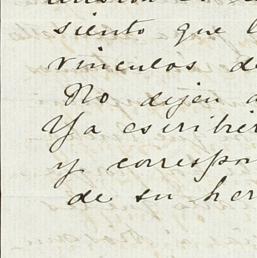 siento que l
vinculos de
No dejen a
Ya escribier
y correspon
de su her